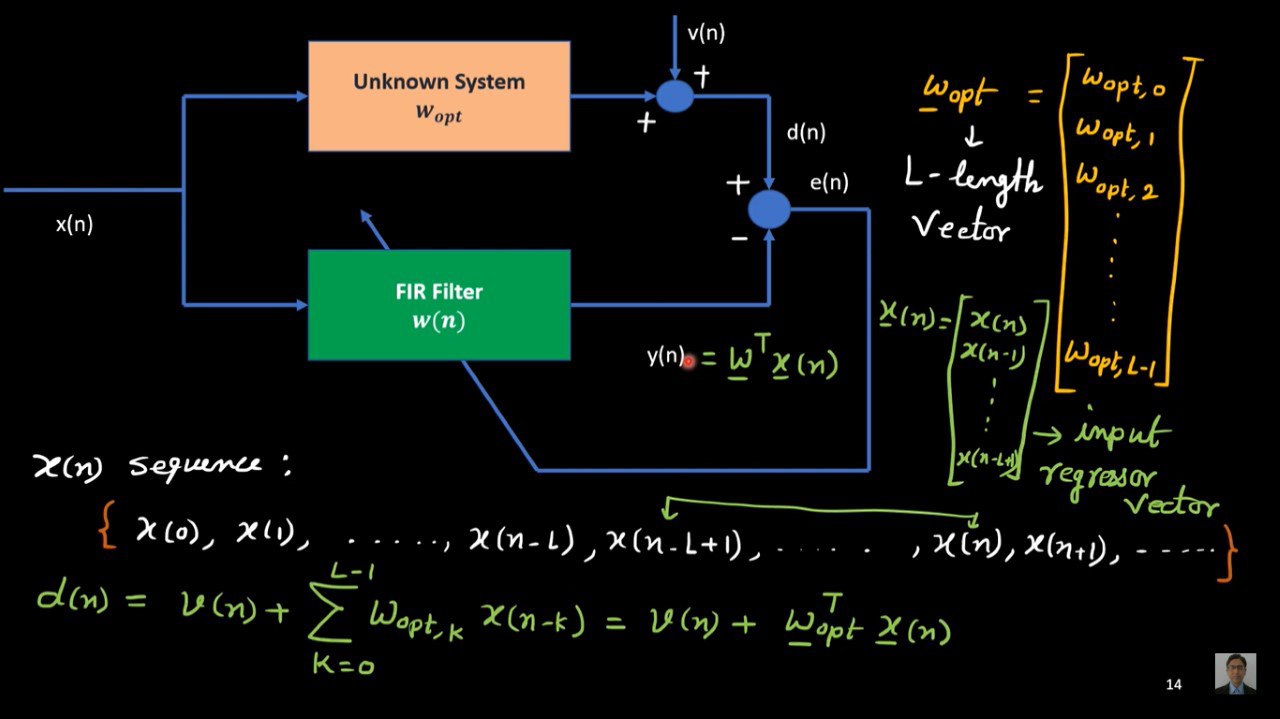 v(n)
Unknown System
w_opt
+
+
d(n)
+
e(n)
−
x(n)
FIR Filter
w(n)
y(n) = w^T x(n)
w_opt = [w_opt,0
w_opt,1
w_opt,2
⋮
w_opt,L-1]
↓
L-length
Vector
x(n) = [x(n)
x(n-1)
⋮
x(n-L+1)]
→ input
regressor
vector
x(n) sequence:
{ x(0), x(1), ....., x(n-L), x(n-L+1), ......, x(n), x(n+1), ----- }
d(n) = v(n) + ∑_{k=0}^{L-1} w_opt,k x(n-k) = v(n) + w_opt^T x(n)
14